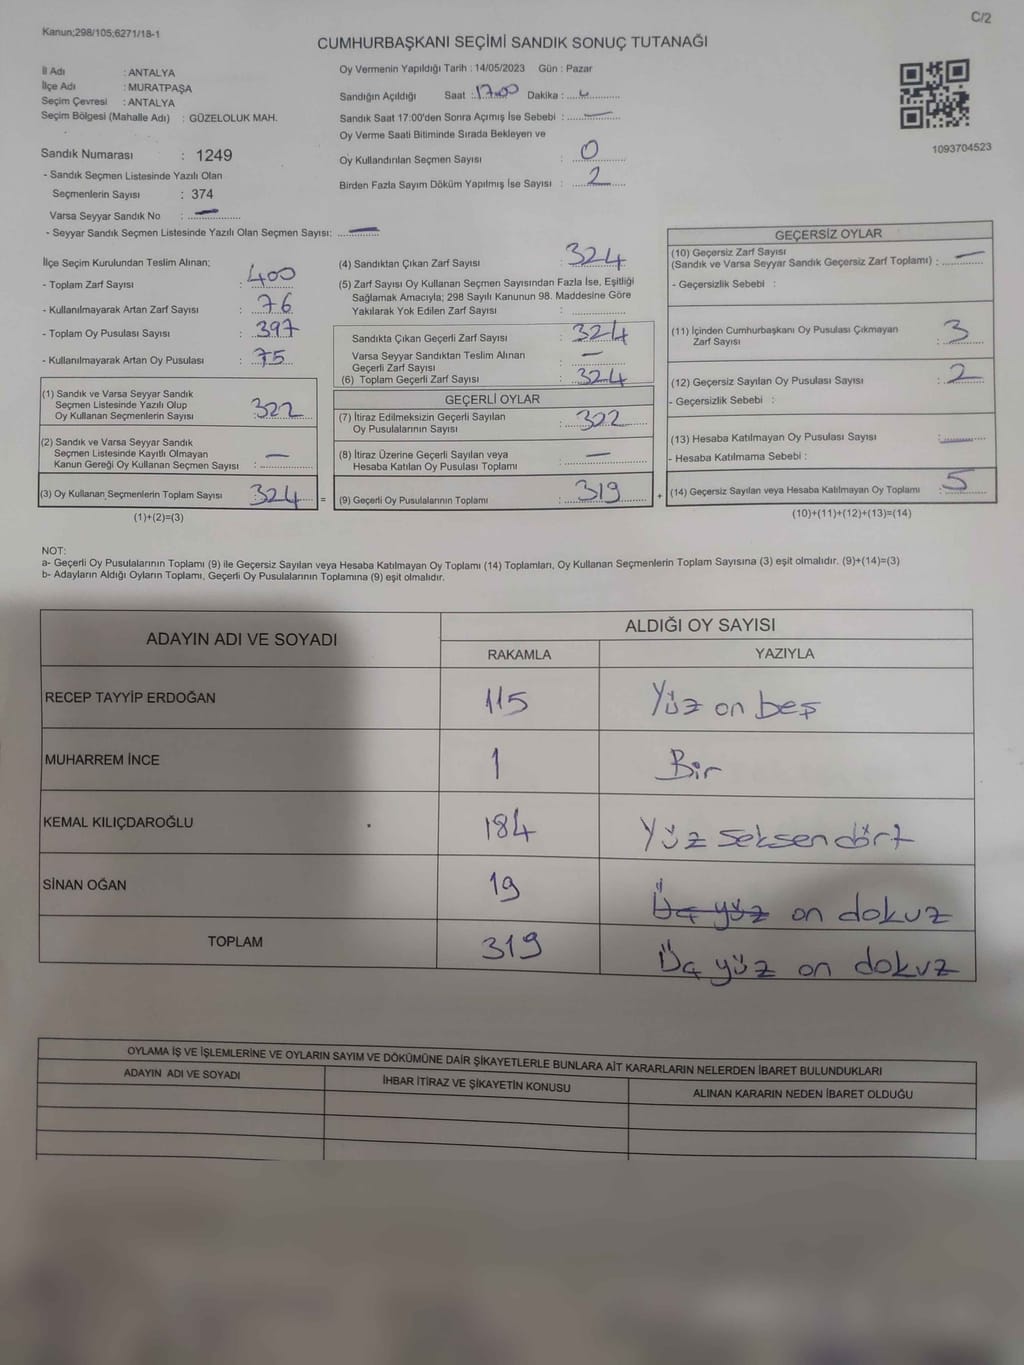 C/2
Kanun;298/105;6271/18-1
CUMHURBAŞKANI SEÇİMİ SANDIK SONUÇ TUTANAĞI
İl Adı : ANTALYA
İlçe Adı : MURATPAŞA
Seçim Çevresi : ANTALYA
Seçim Bölgesi (Mahalle Adı) : GÜZELOLUK MAH.
Sandık Numarası : 1249
- Sandık Seçmen Listesinde Yazılı Olan
Seçmenlerin Sayısı : 374
Varsa Seyyar Sandık No : —
- Seyyar Sandık Seçmen Listesinde Yazılı Olan Seçmen Sayısı: —
Oy Vermenin Yapıldığı Tarih : 14/05/2023 Gün : Pazar
Sandığın Açıldığı Saat : 17.00 Dakika :
Sandık Saat 17:00'den Sonra Açımış İse Sebebi : —
Oy Verme Saati Bitiminde Sırada Bekleyen ve
Oy Kullandırılan Seçmen Sayısı : 0
Birden Fazla Sayım Döküm Yapılmış İse Sayısı : 2
1093704523
İlçe Seçim Kurulundan Teslim Alınan;
- Toplam Zarf Sayısı : 400
- Kullanılmayarak Artan Zarf Sayısı : 76
- Toplam Oy Pusulası Sayısı : 397
- Kullanılmayarak Artan Oy Pusulası : 75
(1) Sandık ve Varsa Seyyar Sandık
Seçmen Listesinde Yazılı Olup
Oy Kullanan Seçmenlerin Sayısı : 322
(2) Sandık ve Varsa Seyyar Sandık
Seçmen Listesinde Kayıtlı Olmayan
Kanun Gereği Oy Kullanan Seçmen Sayısı : —
(3) Oy Kullanan Seçmenlerin Toplam Sayısı : 324 =
(1)+(2)=(3)
(4) Sandıktan Çıkan Zarf Sayısı : 324
(5) Zarf Sayısı Oy Kullanan Seçmen Sayısından Fazla İse, Eşitliği
Sağlamak Amacıyla; 298 Sayılı Kanunun 98. Maddesine Göre
Yakılarak Yok Edilen Zarf Sayısı :
Sandıkta Çıkan Geçerli Zarf Sayısı : 324
Varsa Seyyar Sandıktan Teslim Alınan
Geçerli Zarf Sayısı : —
(6) Toplam Geçerli Zarf Sayısı : 324
GEÇERLİ OYLAR
(7) İtiraz Edilmeksizin Geçerli Sayılan
Oy Pusulalarının Sayısı : 322
(8) İtiraz Üzerine Geçerli Sayılan veya
Hesaba Katılan Oy Pusulası Toplamı : —
(9) Geçerli Oy Pusulalarının Toplamı : 319 +
GEÇERSİZ OYLAR
(10) Geçersiz Zarf Sayısı
(Sandık ve Varsa Seyyar Sandık Geçersiz Zarf Toplamı) : —
- Geçersizlik Sebebi :
(11) İçinden Cumhurbaşkanı Oy Pusulası Çıkmayan
Zarf Sayısı : 3
(12) Geçersiz Sayılan Oy Pusulası Sayısı : 2
- Geçersizlik Sebebi :
(13) Hesaba Katılmayan Oy Pusulası Sayısı : —
- Hesaba Katılmama Sebebi :
(14) Geçersiz Sayılan veya Hesaba Katılmayan Oy Toplamı : 5
(10)+(11)+(12)+(13)=(14)
NOT:
a- Geçerli Oy Pusulalarının Toplamı (9) ile Geçersiz Sayılan veya Hesaba Katılmayan Oy Toplamı (14) Toplamları, Oy Kullanan Seçmenlerin Toplam Sayısına (3) eşit olmalıdır. (9)+(14)=(3)
b- Adayların Aldığı Oyların Toplamı, Geçerli Oy Pusulalarının Toplamına (9) eşit olmalıdır.
ADAYIN ADI VE SOYADI ALDIĞI OY SAYISI
RAKAMLA YAZIYLA
RECEP TAYYİP ERDOĞAN 115 Yüz on beş
MUHARREM İNCE 1 Bir
KEMAL KILIÇDAROĞLU 184 Yüz seksen dört
SİNAN OĞAN 19 Üç yüz on dokuz
TOPLAM 319 Üç yüz on dokuz
OYLAMA İŞ VE İŞLEMLERİNE VE OYLARIN SAYIM VE DÖKÜMÜNE DAİR ŞİKAYETLERLE BUNLARA AİT KARARLARIN NELERDEN İBARET BULUNDUKLARI
ADAYIN ADI VE SOYADI İHBAR İTİRAZ VE ŞİKAYETİN KONUSU ALINAN KARARIN NEDEN İBARET OLDUĞU